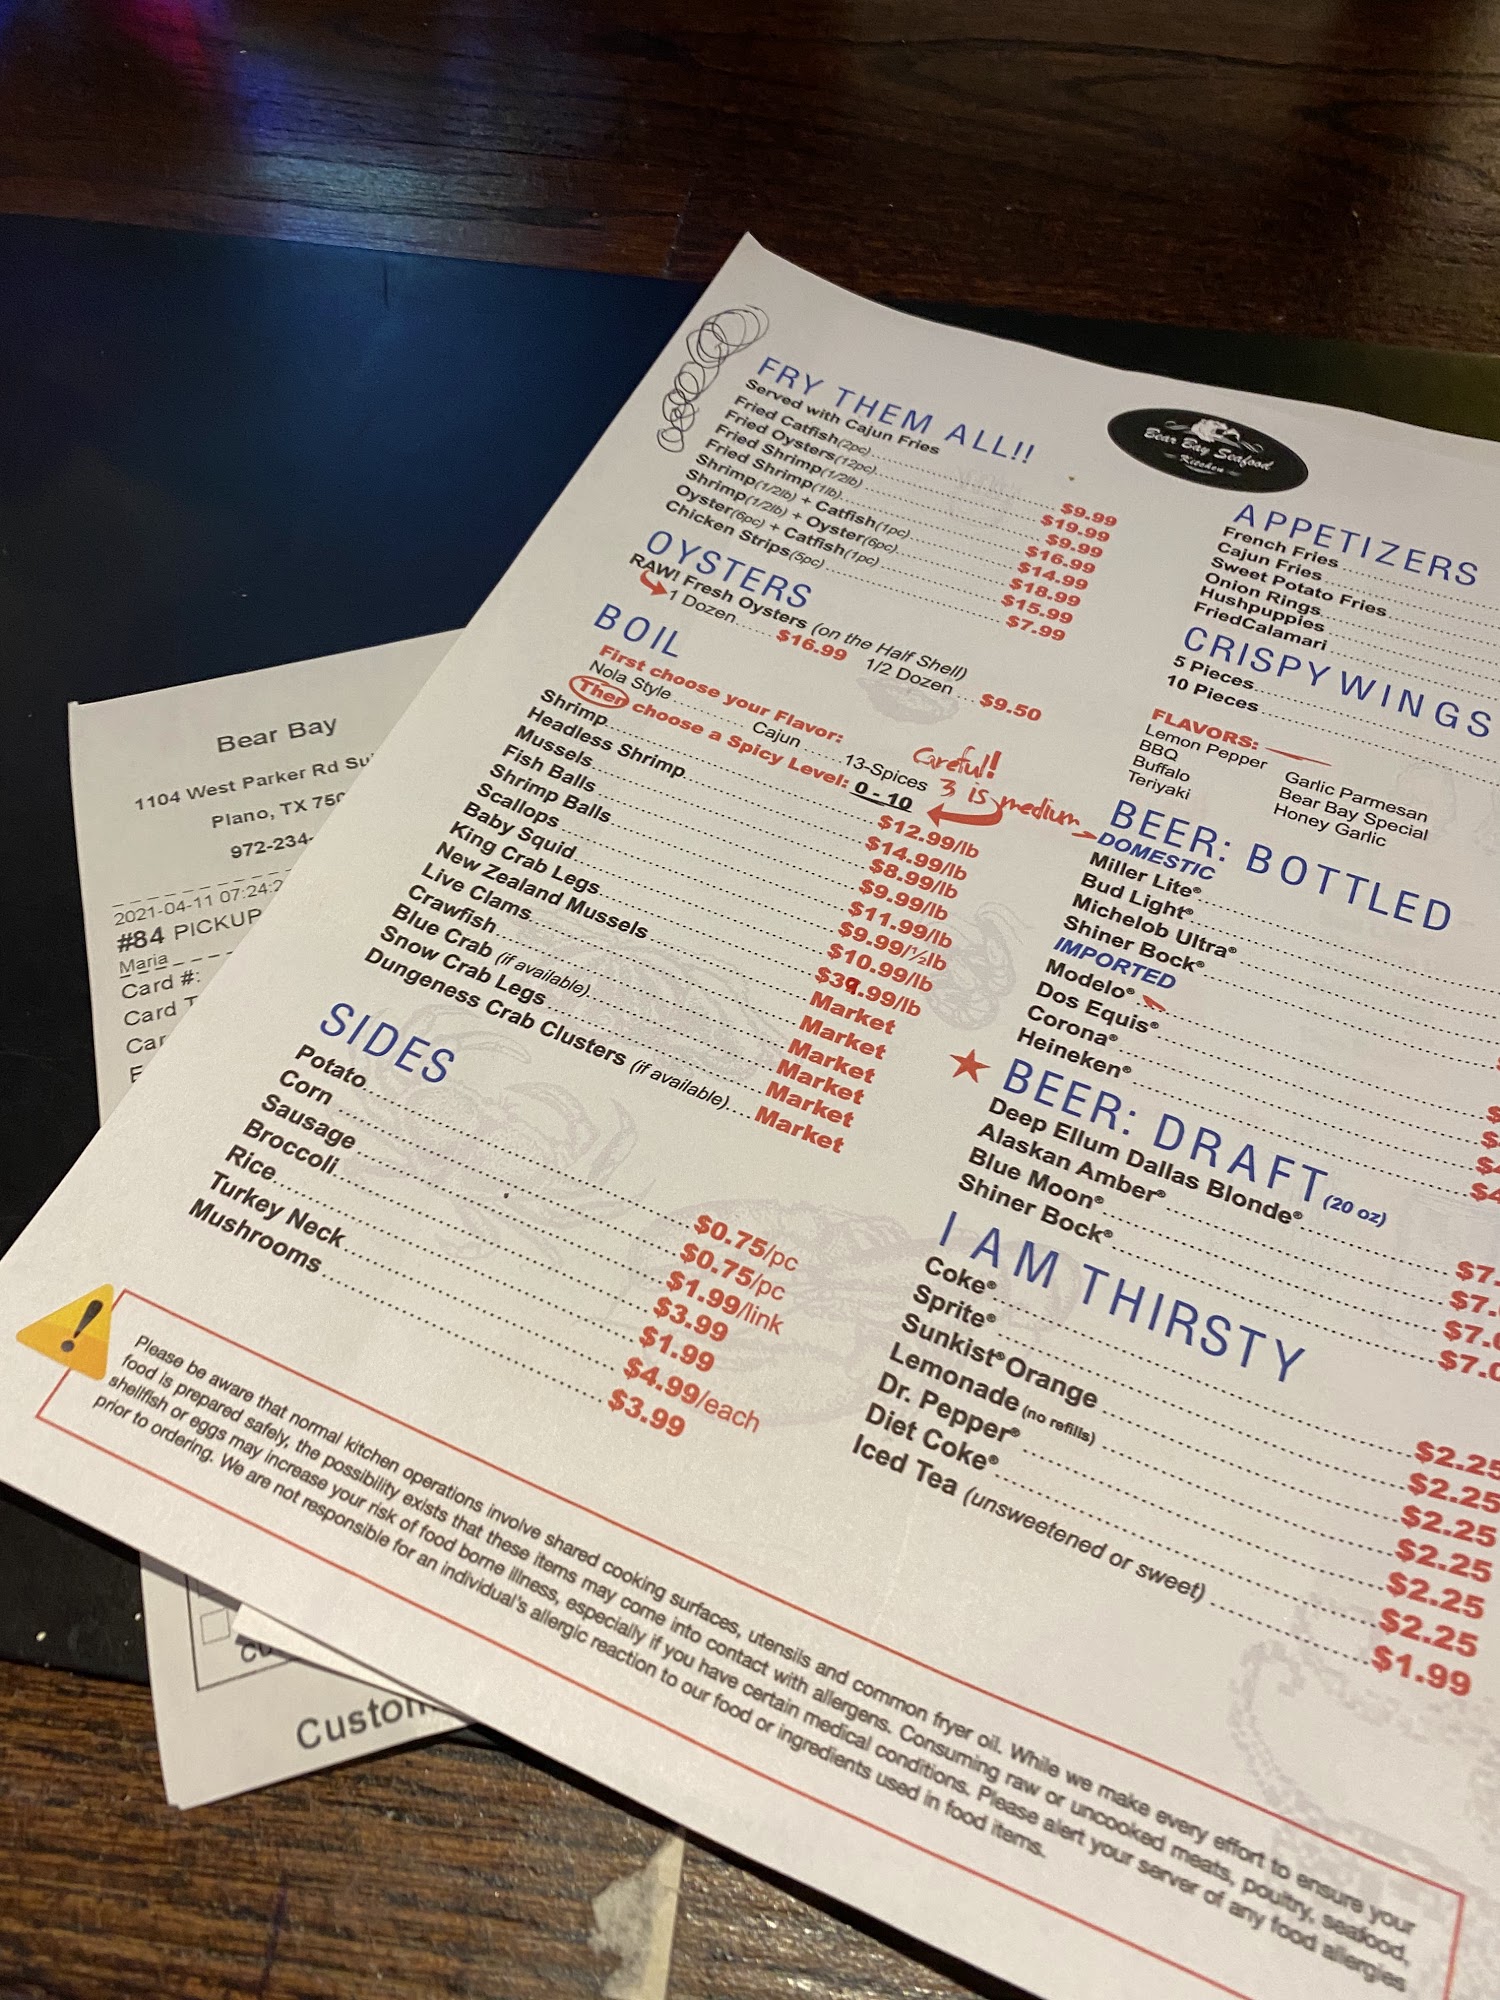 FRY THEM ALL!!
Served with Cajun Fries
Fried Catfish(2pc) $9.99
Fried Oysters(12pc) $19.99
Fried Shrimp(1/2lb) $9.99
Fried Shrimp(1lb) $16.99
Shrimp(1/2lb) + Catfish(1pc) $14.99
Shrimp(1/2lb) + Oyster(6pc) $18.99
Oyster(6pc) + Catfish(1pc) $15.99
Chicken Strips(5pc) $7.99
OYSTERS
RAW! Fresh Oysters (on the Half Shell)
1 Dozen $16.99 1/2 Dozen $9.50
BOIL
First choose your Flavor:
Nola Style Cajun 13-Spices
Then choose a Spicy Level: 0 - 10
Careful!
3 is medium
Shrimp $12.99/lb
Headless Shrimp $14.99/lb
Mussels $8.99/lb
Fish Balls $9.99/lb
Shrimp Balls $11.99/lb
Scallops $9.99/½lb
Baby Squid $10.99/lb
King Crab Legs $39.99/lb
New Zealand Mussels Market
Live Clams Market
Crawfish Market
Blue Crab (if available) Market
Snow Crab Legs Market
Dungeness Crab Clusters (if available) Market
SIDES
Potato $0.75/pc
Corn $0.75/pc
Sausage $1.99/link
Broccoli $3.99
Rice $1.99
Turkey Neck $4.99/each
Mushrooms $3.99
Bear Bay Seafood
Kitchen
APPETIZERS
French Fries
Cajun Fries
Sweet Potato Fries
Onion Rings
Hushpuppies
FriedCalamari
CRISPY WINGS
5 Pieces
10 Pieces
FLAVORS:
Lemon Pepper Garlic Parmesan
BBQ Bear Bay Special
Buffalo Honey Garlic
Teriyaki
BEER: BOTTLED
DOMESTIC
Miller Lite®
Bud Light®
Michelob Ultra®
Shiner Bock®
IMPORTED
Modelo®
Dos Equis®
Corona®
Heineken®
BEER: DRAFT (20 oz)
Deep Ellum Dallas Blonde® $7.
Alaskan Amber® $7.
Blue Moon® $7.
Shiner Bock® $7.
I AM THIRSTY
Coke® $2.25
Sprite® $2.25
Sunkist® Orange $2.25
Lemonade (no refills) $2.25
Dr. Pepper® $2.25
Diet Coke® $2.25
Iced Tea (unsweetened or sweet) $1.99
Please be aware that normal kitchen operations involve shared cooking surfaces, utensils and common fryer oil. While we make every effort to ensure your
food is prepared safely, the possibility exists that these items may come into contact with allergens. Consuming raw or uncooked meats, poultry, seafood,
shellfish or eggs may increase your risk of food borne illness, especially if you have certain medical conditions. Please alert your server of any food allergies
prior to ordering. We are not responsible for an individual's allergic reaction to our food or ingredients used in food items.
Bear Bay
1104 West Parker Rd
Plano, TX 750
972-234-
2021-04-11 07:24:2
#84 PICKUP
Maria
Card #:
Card
Custom